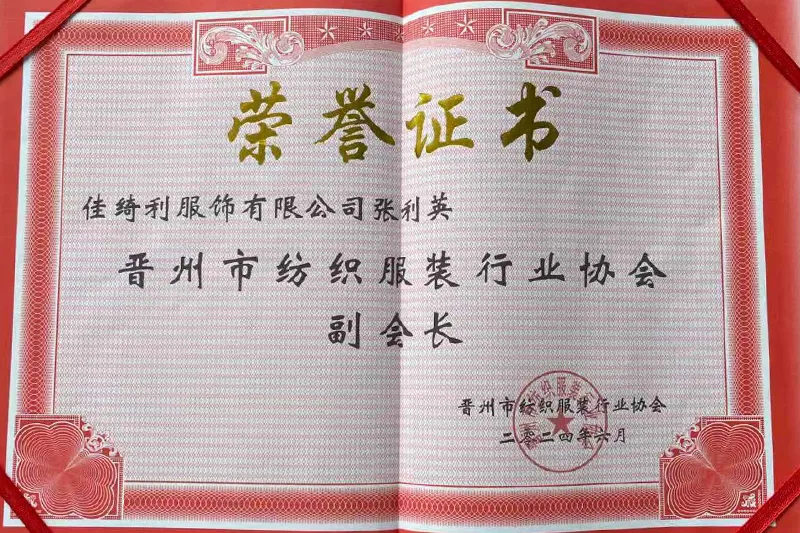 荣誉证书
佳绮利服饰有限公司张利英
晋州市纺织服装行业协会
副会长
晋州市纺织服装行业协会
二〇二四年六月